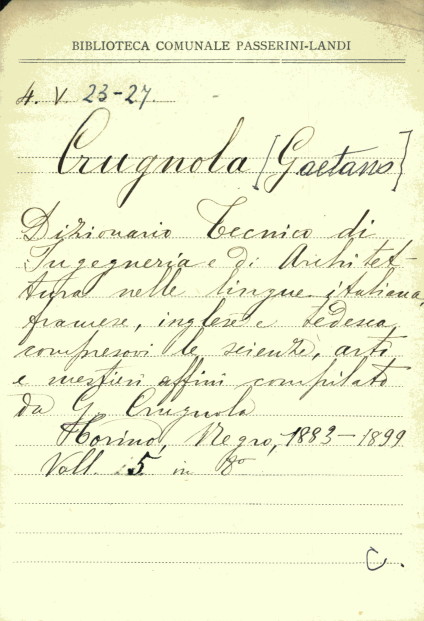 BIBLIOTECA COMUNALE PASSERINI-LANDI
4. V. 23-27.
Crugnola [Gaetano]
Dizionario Tecnico di
Ingegneria e di Architet-
tura nelle lingue italiana,
francese, inglese e tedesca
compresovi le scienze, arti
e mestieri affini compilato
da G. Crugnola
Torino, Negro, 1883-1899
Voll. 5 in 8º
C.